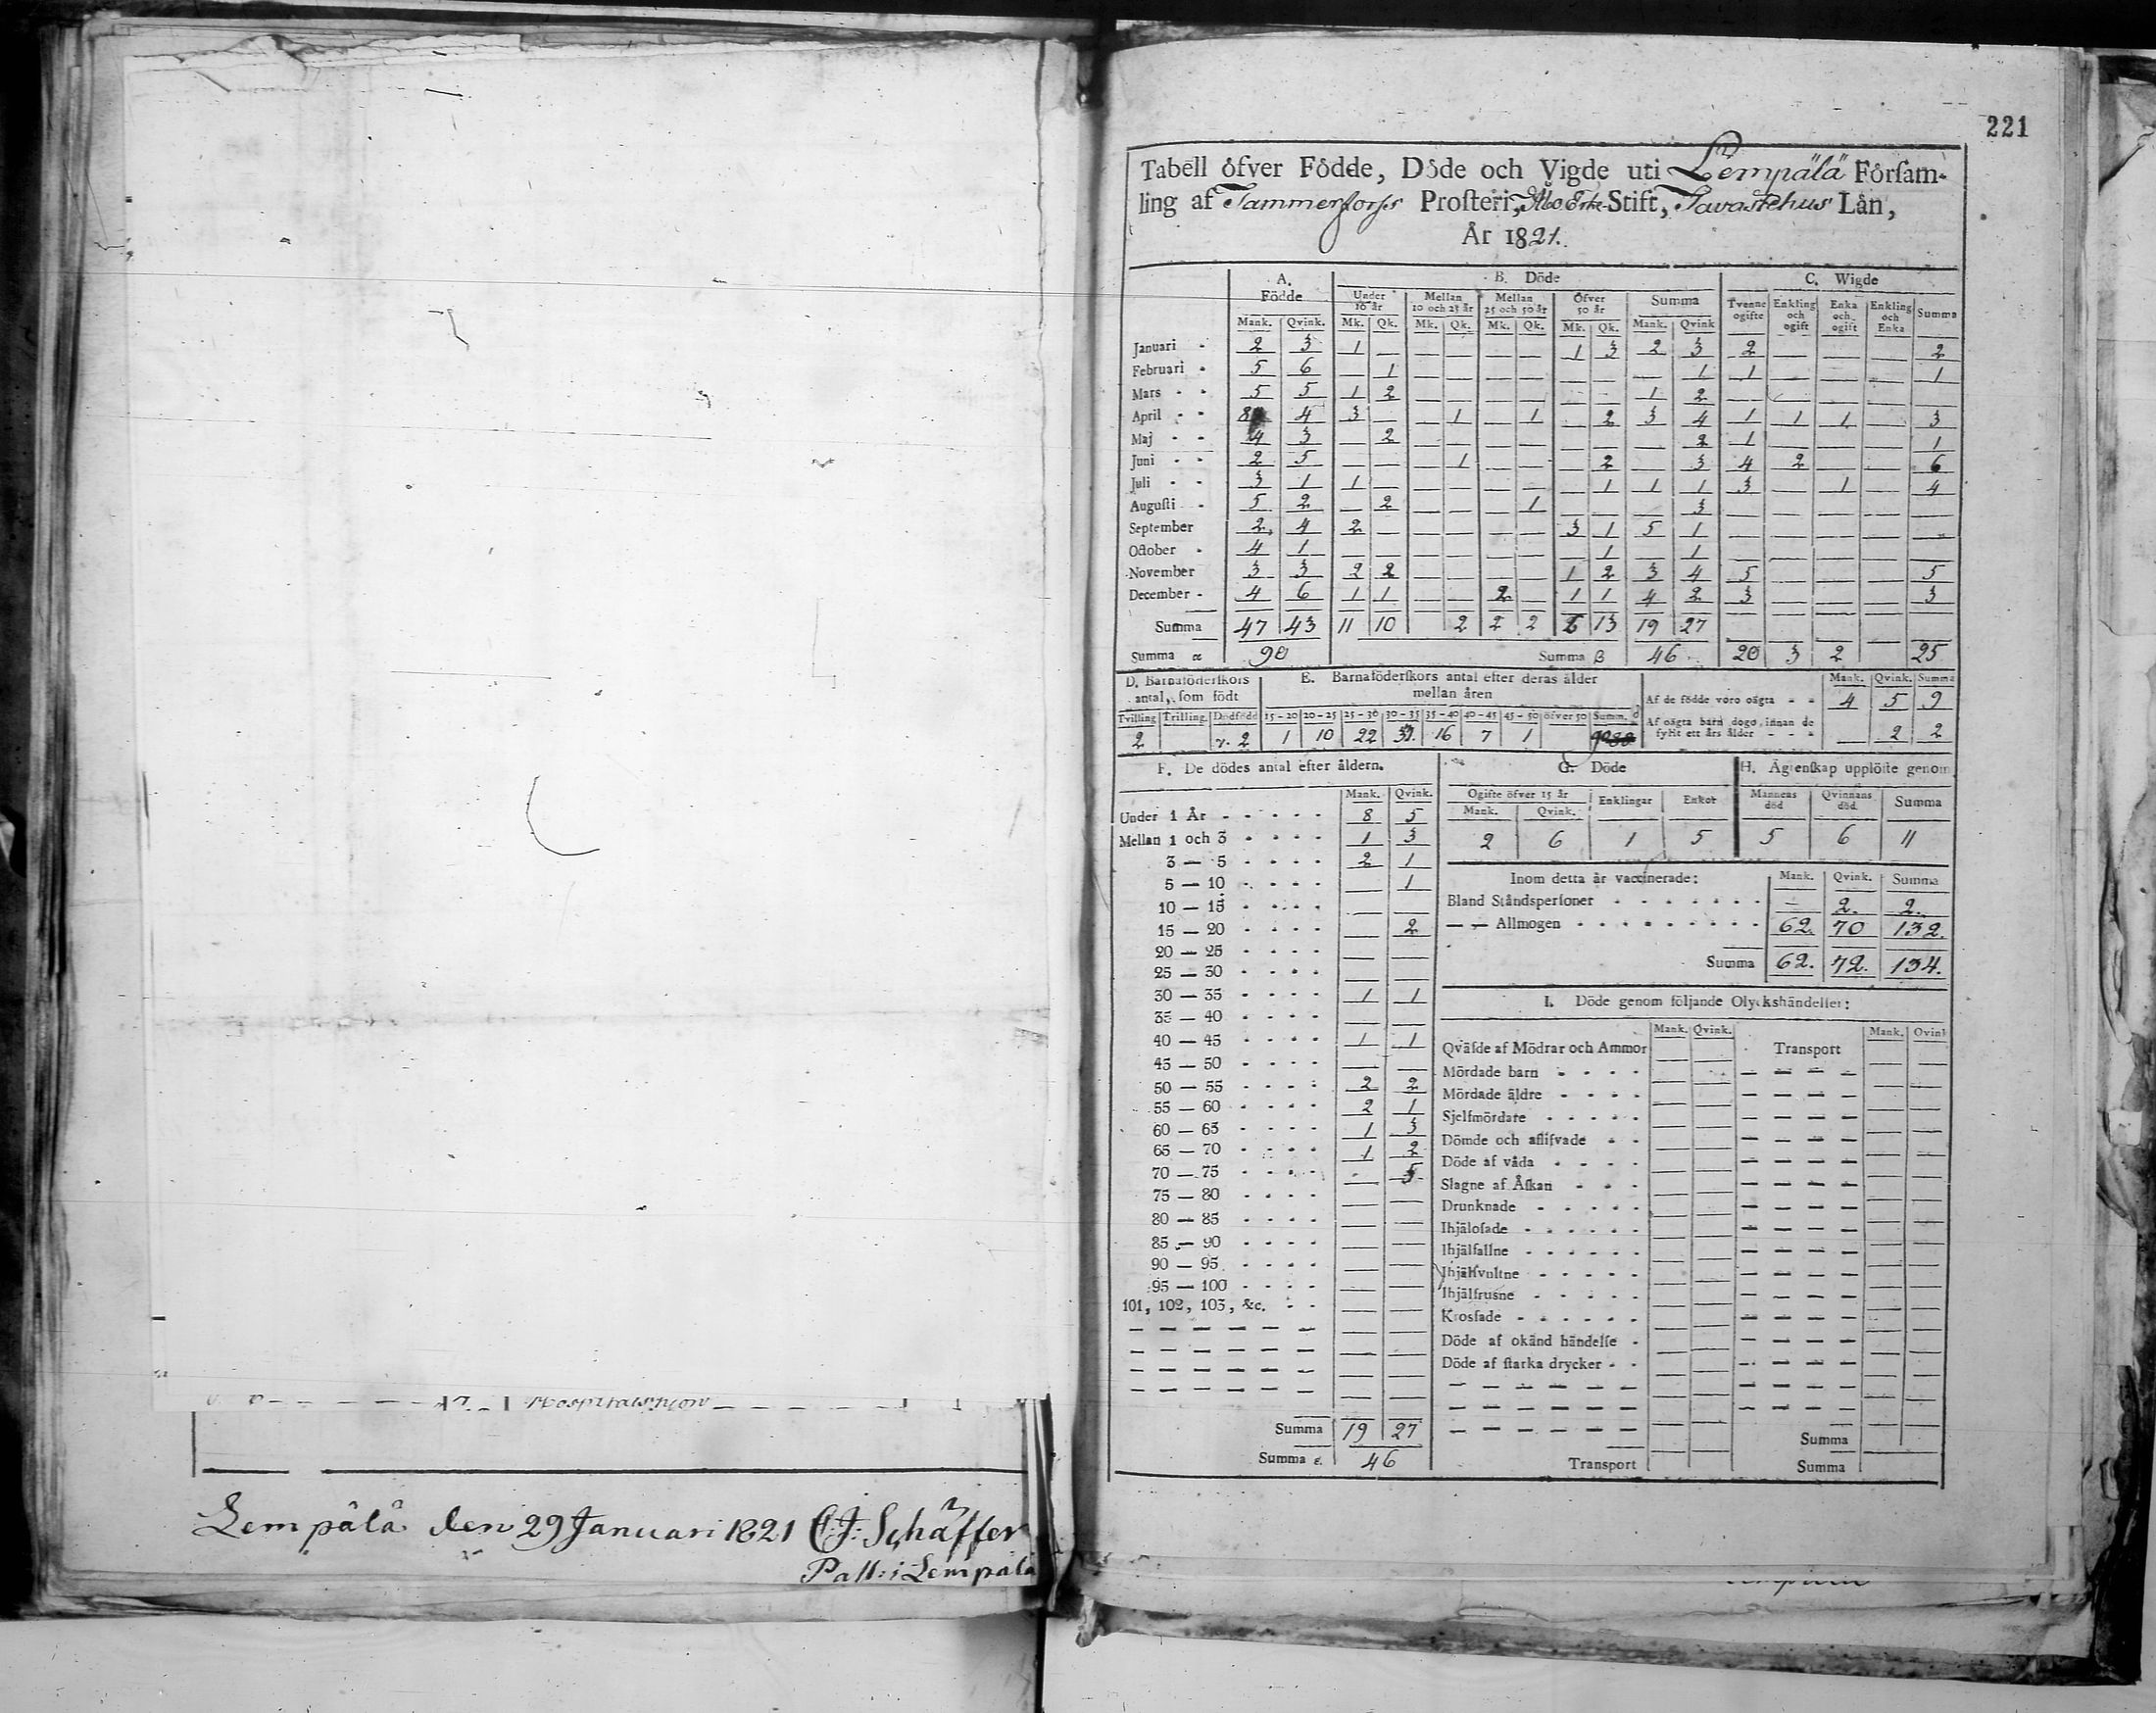 Hospitalshjon
Lempälä den 29 Januari 1821 C:J: Schäffer
Past: i Lempälä
221
Tabell öfver Födde, Döde och Vigde uti Lempälä Försam-
ling af Tammerforss Prosteri, Åbo Erke-Stift, Tavastehus Län,
År 1821.
A. Födde B. Döde C. Wigde
Under 10 år Mellan 10 och 25 år Mellan 25 och 50 år Öfver 50 år Summa Tvenne ogifte Enkling och ogift Enka och ogift Enkling och Enka Summa
Mank. Qvink. Mk. Qk. Mk. Qk. Mk. Qk. Mk. Qk. Mank. Qvink
Januari - 2 3 1 — — — — — 1 3 2 3 2 — — — 2
Februari - 5 6 — 1 — — — — — — — 1 1 — — — 1
Mars - - 5 5 1 2 — — — — — — 1 2 — — — — —
April - - 8 4 3 — — 1 — 1 — 2 3 4 1 1 1 — 3
Maj - - 4 3 — 2 — — — — — — — 2 1 — — — 1
Juni - - 2 5 — — — 1 — — — 2 — 3 4 2 — — 6
Juli - - 3 1 1 — — — — — — 1 1 1 3 — 1 — 4
Augusti - 5 2 — 2 — — — 1 — — — 3 — — — — —
September 2 4 2 — — — — — 3 1 5 1 — — — — —
October - 4 1 — — — — — — — 1 — 1 — — — — —
November 3 3 2 2 — — — — 1 2 3 4 5 — — — 5
December - 4 6 1 1 — — 2 — 1 1 4 2 3 — — — 3
Summa 47 43 11 10 2 2 2 6 13 19 27
Summa α 90 Summa β 46 20 3 2 25
D. Barnaföderskors antal, som födt
Tvilling Trilling. Dödfödd
2 2
E. Barnaföderskors antal efter deras ålder mellan åren
15-20 20-25 25-30 30-35 35-40 40-45 45-50 öfver 50 Summ. δ
1 10 22 16 7 1
Mank. Qvink. Summa
Af de födde voro oägta - - 4 5 9
Af oägta barn dogo, innan de fyllt ett års ålder - - - — 2 2
F. De dödes antal efter åldern.
Mank. Qvink.
Under 1 År - - - - - 8 5
Mellan 1 och 3 - - - - 1 3
3 — 5 - - - - 2 1
5 — 10 - - - - — 1
10 — 15 - - - - — —
15 — 20 - - - - — 2
20 — 25 - - - - — —
25 — 30 - - - - — —
30 — 35 - - - - 1 1
35 — 40 - - - - — —
40 — 45 - - - - 1 1
45 — 50 - - - - — —
50 — 55 - - - - 2 2
55 — 60 - - - - 2 1
60 — 65 - - - - 1 3
65 — 70 - - - - 1 2
70 — 75 - - - - — 5
75 — 80 - - - - — —
80 — 85 - - - - — —
85 — 90 - - - - — —
90 — 95 - - - - — —
95 — 100 - - - - — —
101, 102, 103, &c. - - — —
Summa 19 27
Summa ε. 46
G. Döde
Ogifte öfver 15 år Enklingar Enkor
Mank. Qvink.
2 6 1 5
H. Ägtenskap upplöste genom
Mannens död Qvinnans död. Summa
5 6 11
Inom detta år vaccinerade: Mank. Qvink. Summa
Bland Ståndspersoner - - - - - - - — 2. 2.
— — Allmogen - - - - - - - - - 62. 70 132.
Summa 62. 72. 134.
I. Döde genom följande Olyckshändelser:
Mank. Qvink. Mank. Qvink
Qväfde af Mödrar och Ammor Transport
Mördade barn - - - -
Mördade äldre - - - -
Sjelfmördare - - - - -
Dömde och aflifvade - -
Döde af våda - - - -
Slagne af Åskan - - -
Drunknade - - - - -
Ihjälosade - - - - - -
Ihjälfallne - - - - - -
Ihjälsvultne - - - - -
Ihjälfrusne - - - - -
Krossade - - - - - -
Döde af okänd händelse -
Döde af starka drycker - -
Summa
Transport Summa